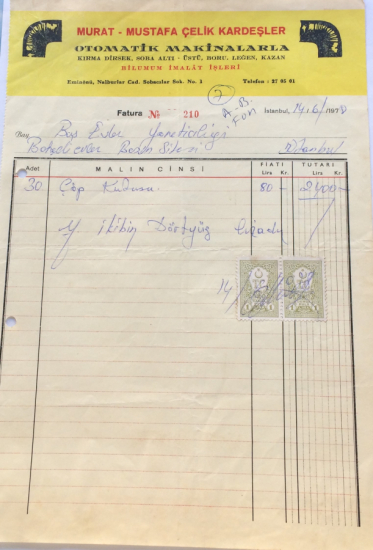 MURAT - MUSTAFA ÇELİK KARDEŞLER
OTOMATİK MAKİNALARLA
KIRMA DİRSEK, SOBA ALTI - ÜSTÜ, BORU, LEĞEN, KAZAN
BİLUMUM İMALÂT İŞLERİ
Eminönü, Nalburlar Cad. Sobacılar Sok. No. 1 Telefon : 27 95 01
7
Fatura № 210
İstanbul, 14/6/1978
Bay Baş Evler Yöneticiliği
Bahçelievler Sitesi İstanbul
Adet MALIN CİNSİ FİATI TUTARI
Lira Kr. Lira Kr.
30 Çöp Kutusu 80 - 2400 -
Y İkibin Dörtyüz Liradır
14/6/1978